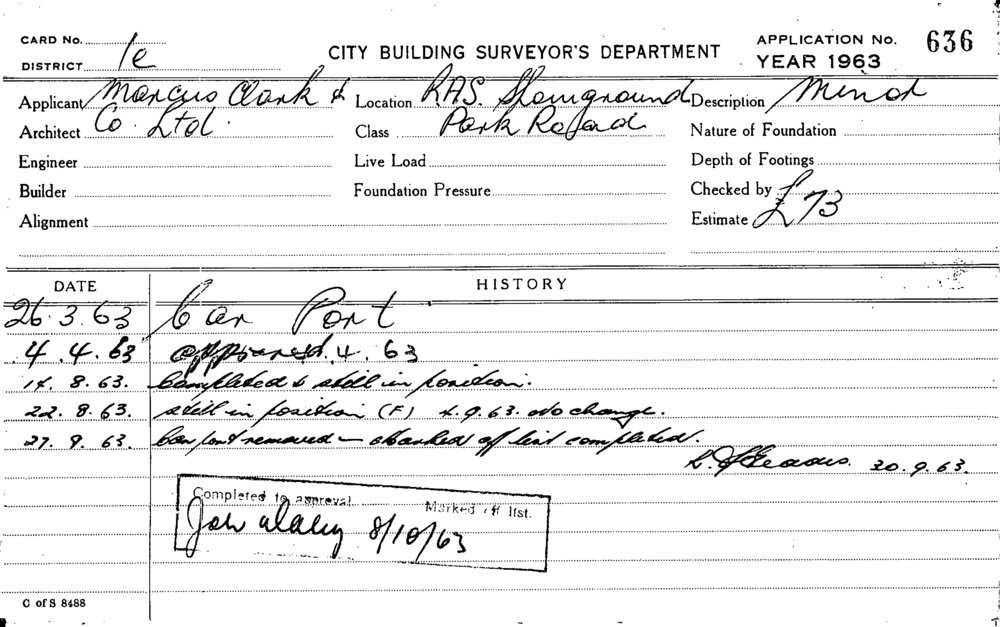 CARD No.
DISTRICT 1e
CITY BUILDING SURVEYOR'S DEPARTMENT
APPLICATION No. 636
YEAR 1963
Applicant Marcus Clark &
Architect Co. Ltd.
Engineer
Builder
Alignment
Location RAS. Showground
Class Park Road
Live Load
Foundation Pressure
Description Minor
Nature of Foundation
Depth of Footings
Checked by
Estimate £73
DATE HISTORY
26.3.63 Car Port
4.4.63 approved. 4. 63
14.8.63. Completed & still in position.
22.8.63. still in position (F) 4.9.63. No change.
27.9.63. Car port removed — marked off list completed.
30.9.63.
Completed to approval. Marked off list.
8/10/63
C of S 8488